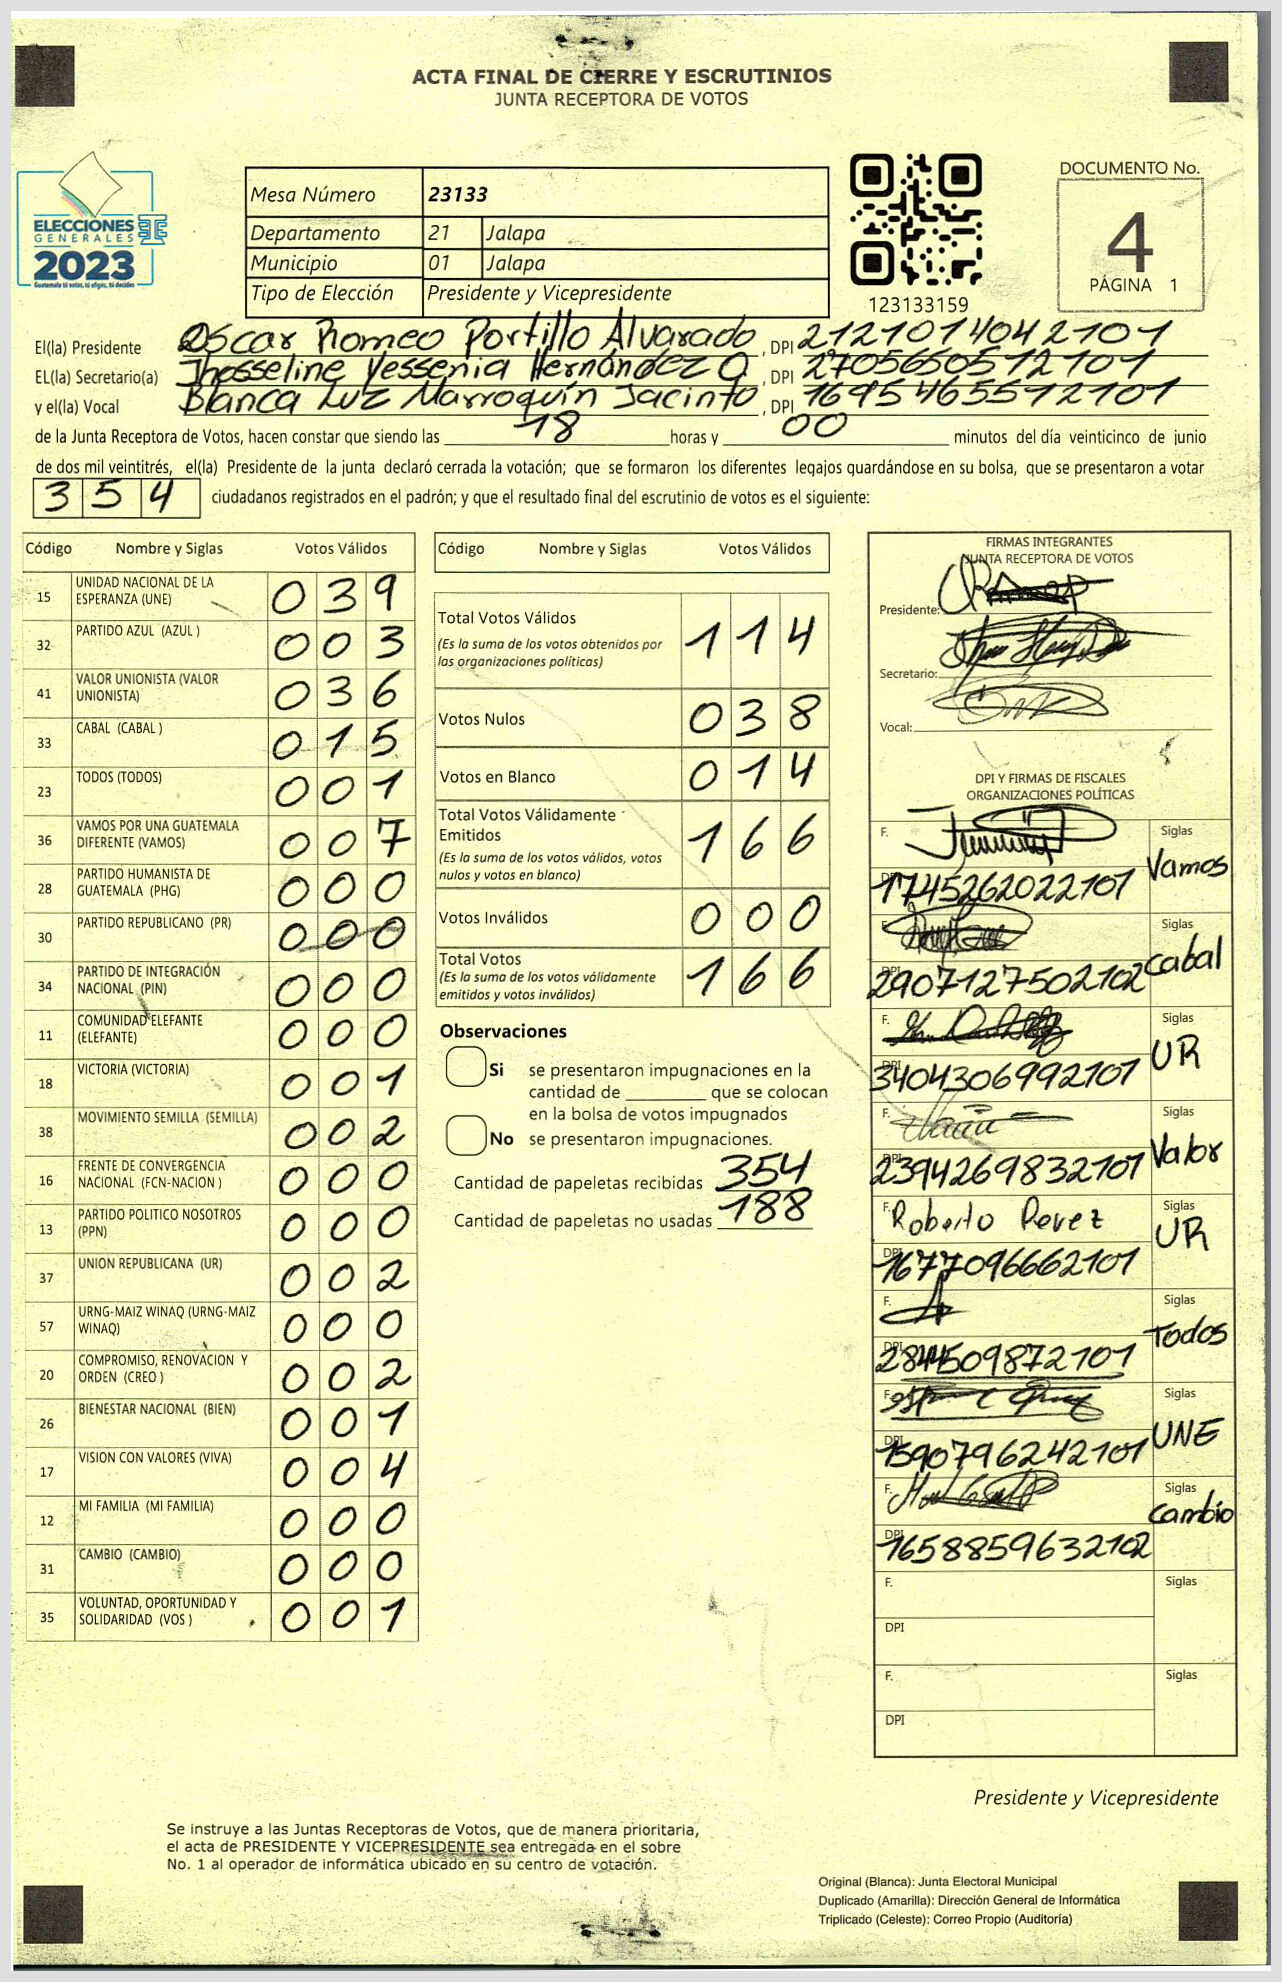 ACTA FINAL DE CIERRE Y ESCRUTINIOS
JUNTA RECEPTORA DE VOTOS
ELECCIONES
GENERALES
2023
Guatemala tú votas, tú eliges, tú decides
Mesa Número 23133
Departamento 21 Jalapa
Municipio 01 Jalapa
Tipo de Elección Presidente y Vicepresidente
123133159
DOCUMENTO No.
4
PÁGINA 1
El(la) Presidente Oscar Romeo Portillo Alvarado, DPI 2121014042101
EL(la) Secretario(a) Jhosseline Yessenia Hernández O, DPI 2705660512101
y el(la) Vocal Blanca Luz Marroquín Jacinto, DPI 1695465512101
de la Junta Receptora de Votos, hacen constar que siendo las 18 horas y 00 minutos del día veinticinco de junio
de dos mil veintitrés, el(la) Presidente de la junta declaró cerrada la votación; que se formaron los diferentes legajos quardándose en su bolsa, que se presentaron a votar
354 ciudadanos registrados en el padrón; y que el resultado final del escrutinio de votos es el siguiente:
Código Nombre y Siglas Votos Válidos
15 UNIDAD NACIONAL DE LA ESPERANZA (UNE) 039
32 PARTIDO AZUL (AZUL ) 003
41 VALOR UNIONISTA (VALOR UNIONISTA) 036
33 CABAL (CABAL ) 015
23 TODOS (TODOS) 001
36 VAMOS POR UNA GUATEMALA DIFERENTE (VAMOS) 007
28 PARTIDO HUMANISTA DE GUATEMALA (PHG) 000
30 PARTIDO REPUBLICANO (PR) 000
34 PARTIDO DE INTEGRACIÓN NACIONAL (PIN) 000
11 COMUNIDAD ELEFANTE (ELEFANTE) 000
18 VICTORIA (VICTORIA) 001
38 MOVIMIENTO SEMILLA (SEMILLA) 002
16 FRENTE DE CONVERGENCIA NACIONAL (FCN-NACION ) 000
13 PARTIDO POLITICO NOSOTROS (PPN) 000
37 UNION REPUBLICANA (UR) 002
57 URNG-MAIZ WINAQ (URNG-MAIZ WINAQ) 000
20 COMPROMISO, RENOVACION Y ORDEN (CREO ) 002
26 BIENESTAR NACIONAL (BIEN) 001
17 VISION CON VALORES (VIVA) 004
12 MI FAMILIA (MI FAMILIA) 000
31 CAMBIO (CAMBIO) 000
35 VOLUNTAD, OPORTUNIDAD Y SOLIDARIDAD (VOS ) 001
Código Nombre y Siglas Votos Válidos
Total Votos Válidos 114
(Es la suma de los votos obtenidos por las organizaciones políticas)
Votos Nulos 038
Votos en Blanco 014
Total Votos Válidamente Emitidos 166
(Es la suma de los votos válidos, votos nulos y votos en blanco)
Votos Inválidos 000
Total Votos 166
(Es la suma de los votos válidamente emitidos y votos inválidos)
Observaciones
Si se presentaron impugnaciones en la
cantidad de ________ que se colocan
en la bolsa de votos impugnados
No se presentaron impugnaciones.
Cantidad de papeletas recibidas 354
Cantidad de papeletas no usadas 188
FIRMAS INTEGRANTES
JUNTA RECEPTORA DE VOTOS
Presidente:
Secretario:
Vocal:
DPI Y FIRMAS DE FISCALES
ORGANIZACIONES POLÍTICAS
F. Siglas Vamos
DPI 1745262022101
F. Siglas Cabal
DPI 2907127502102
F. Siglas UR
DPI 3404306992101
F. Siglas Valor
DPI 2394269832101
F. Roberto Perez Siglas UR
DPI 1677096662101
F. Siglas Todos
DPI 2844509872101
F. Siglas UNE
DPI 1590796242101
F. Siglas Cambio
DPI 1658859632102
F. Siglas
DPI
F. Siglas
DPI
Presidente y Vicepresidente
Se instruye a las Juntas Receptoras de Votos, que de manera prioritaria,
el acta de PRESIDENTE Y VICEPRESIDENTE sea entregada en el sobre
No. 1 al operador de informática ubicado en su centro de votación.
Original (Blanca): Junta Electoral Municipal
Duplicado (Amarilla): Dirección General de Informática
Triplicado (Celeste): Correo Propio (Auditoría)